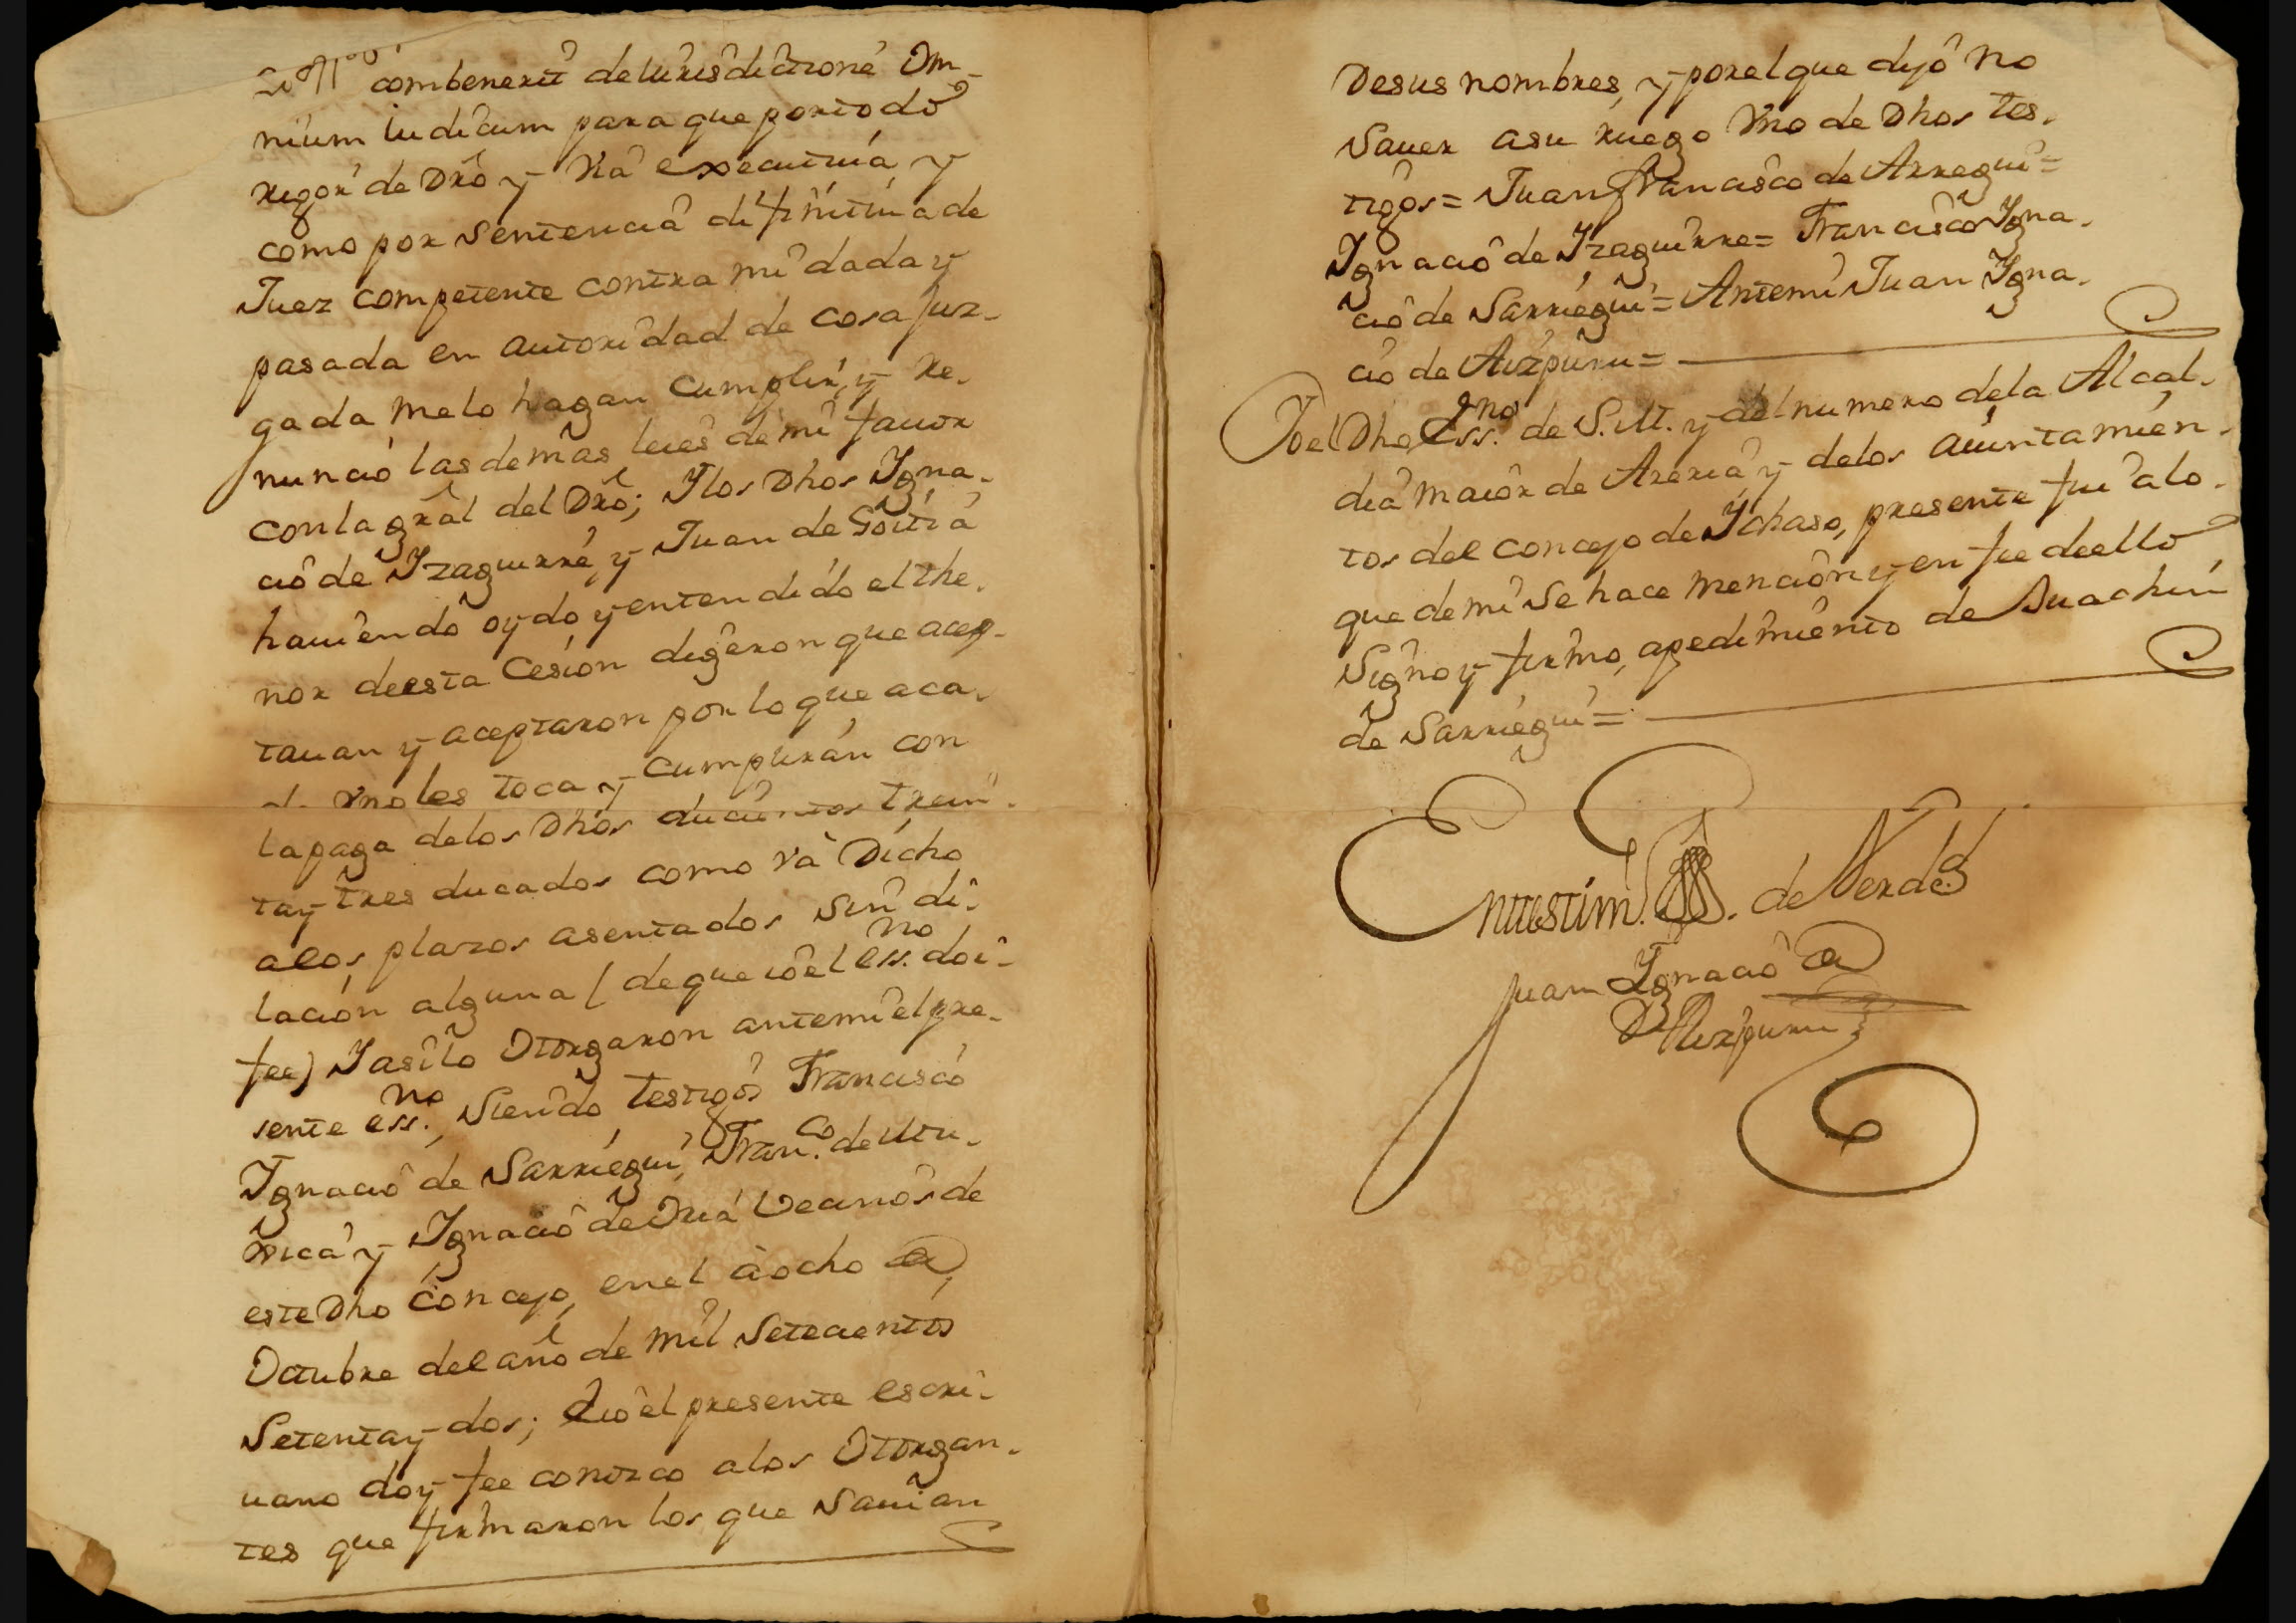 combenerit de Iurisdictione Om-
nium Iudicum para que por todo
rigor de Dro y Via executiua, y
como por Sentencia difinitiua de
Juez competente contra mi dada y
pasada en autoridad de cosa Juz-
gada me lo hagan cumplir, y re-
nuncio las demas leies de mi fauor
con la gral del Dro; Y los Dhos Ygna-
cio de Yzaguirre, y Juan de Goitia
hauiendo oydo y entendido el the-
nor de esta Cesion digeron que acep-
tauan y aceptaron por lo que a ca-
da vno les toca y cumpliran con
la paga de los Dhos ducientos trein-
ta y tres ducados como va Dicho
a los plazos asentados sin di-
lacion alguna (de que io el essno. doi
fee) Y asi lo Otorgaron ante mi el pre-
sente essno., siendo testigos Francisco
Ygnacio de Sarriegui, Franco. de
y Ygnacio de Vecinos de
este Dho Concejo, en el à ocho de
Octubre del año de mil Setecientos
Setenta y dos; E io el presente escri-
uano doy fee conozco a los Otorgan-
tes que firmaron los que Sauian
De sus nombres, y por el que dijo no
Sauer a su ruego Vno de Dhos tes-
tigos= Juan Francisco de Arregui=
Ygnacio de Yzaguirre= Francisco Ygna-
cio de Sarriegui= Ante mi Juan Ygna-
cio de Aizpuru=
Io el Dho Essno. de S.M. y del numero de la Alcal-
dia maior de Areria y de los aiuntamien-
tos del concejo de Ychaso, presente fui a lo
que de mi se hace mencion y en fee de ello
Signo y firmo, a pedimiento de Juachin
de Sarriegui=
En testim. de Verdad
Juan Ygnacio de
Aizpuru